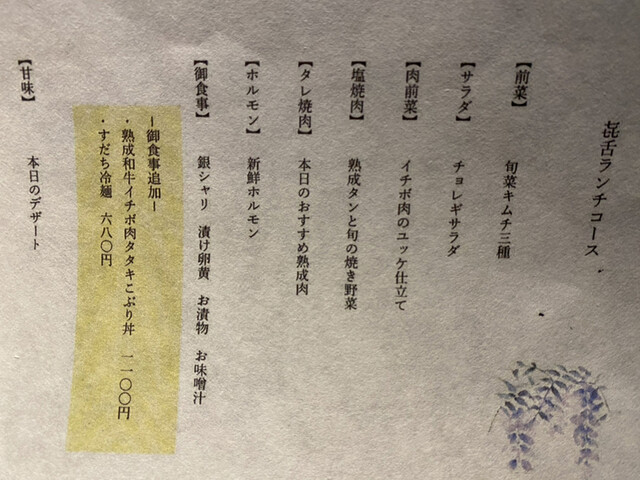 㐂舌ランチコース
【前菜】 旬菜キムチ三種
【サラダ】 チョレギサラダ
【肉前菜】 イチボ肉のユッケ仕立て
【塩焼肉】 熟成タンと旬の焼き野菜
【タレ焼肉】 本日のおすすめ熟成肉
【ホルモン】 新鮮ホルモン
【御食事】 銀シャリ 漬け卵黄 お漬物 お味噌汁
ー御食事追加ー
・熟成和牛イチボ肉タタキこぶり丼 一一〇〇円
・すだち冷麺 六八〇円
【甘味】 本日のデザート